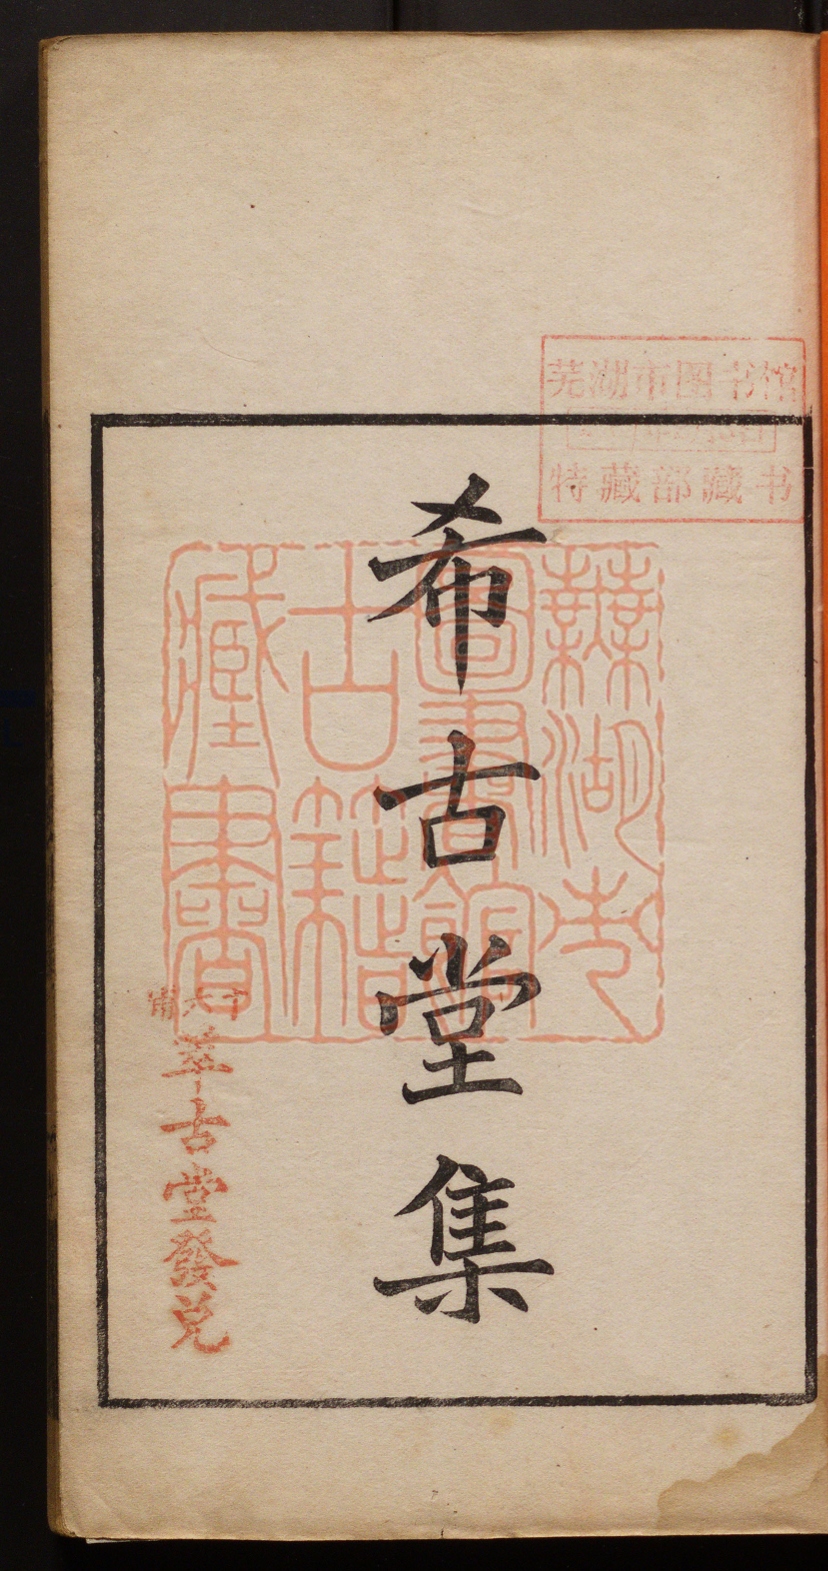 希古堂集
芜湖市图书馆
特藏部藏书
蕪湖市
圖書館
古籍
藏書
萃古堂發兌